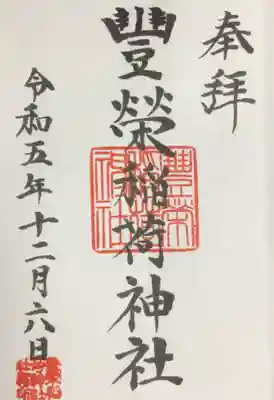 奉拝
豐榮稲荷神社
令和五年十二月六日